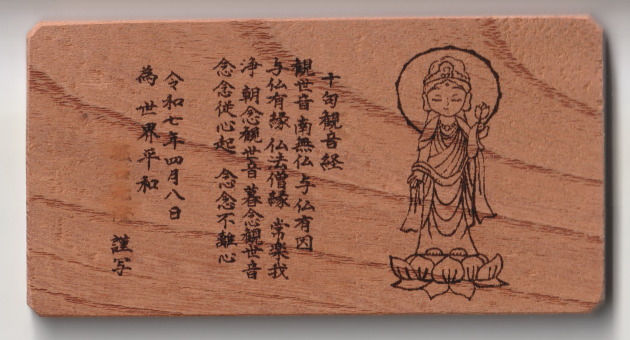 十句觀音経
觀世音 南無仏 与仏有因
与仏有縁 仏法僧縁 常楽我
浄 朝念觀世音 暮念觀世音
念念従心起 念念不離心
令和七年四月八日
為世界平和
謹写